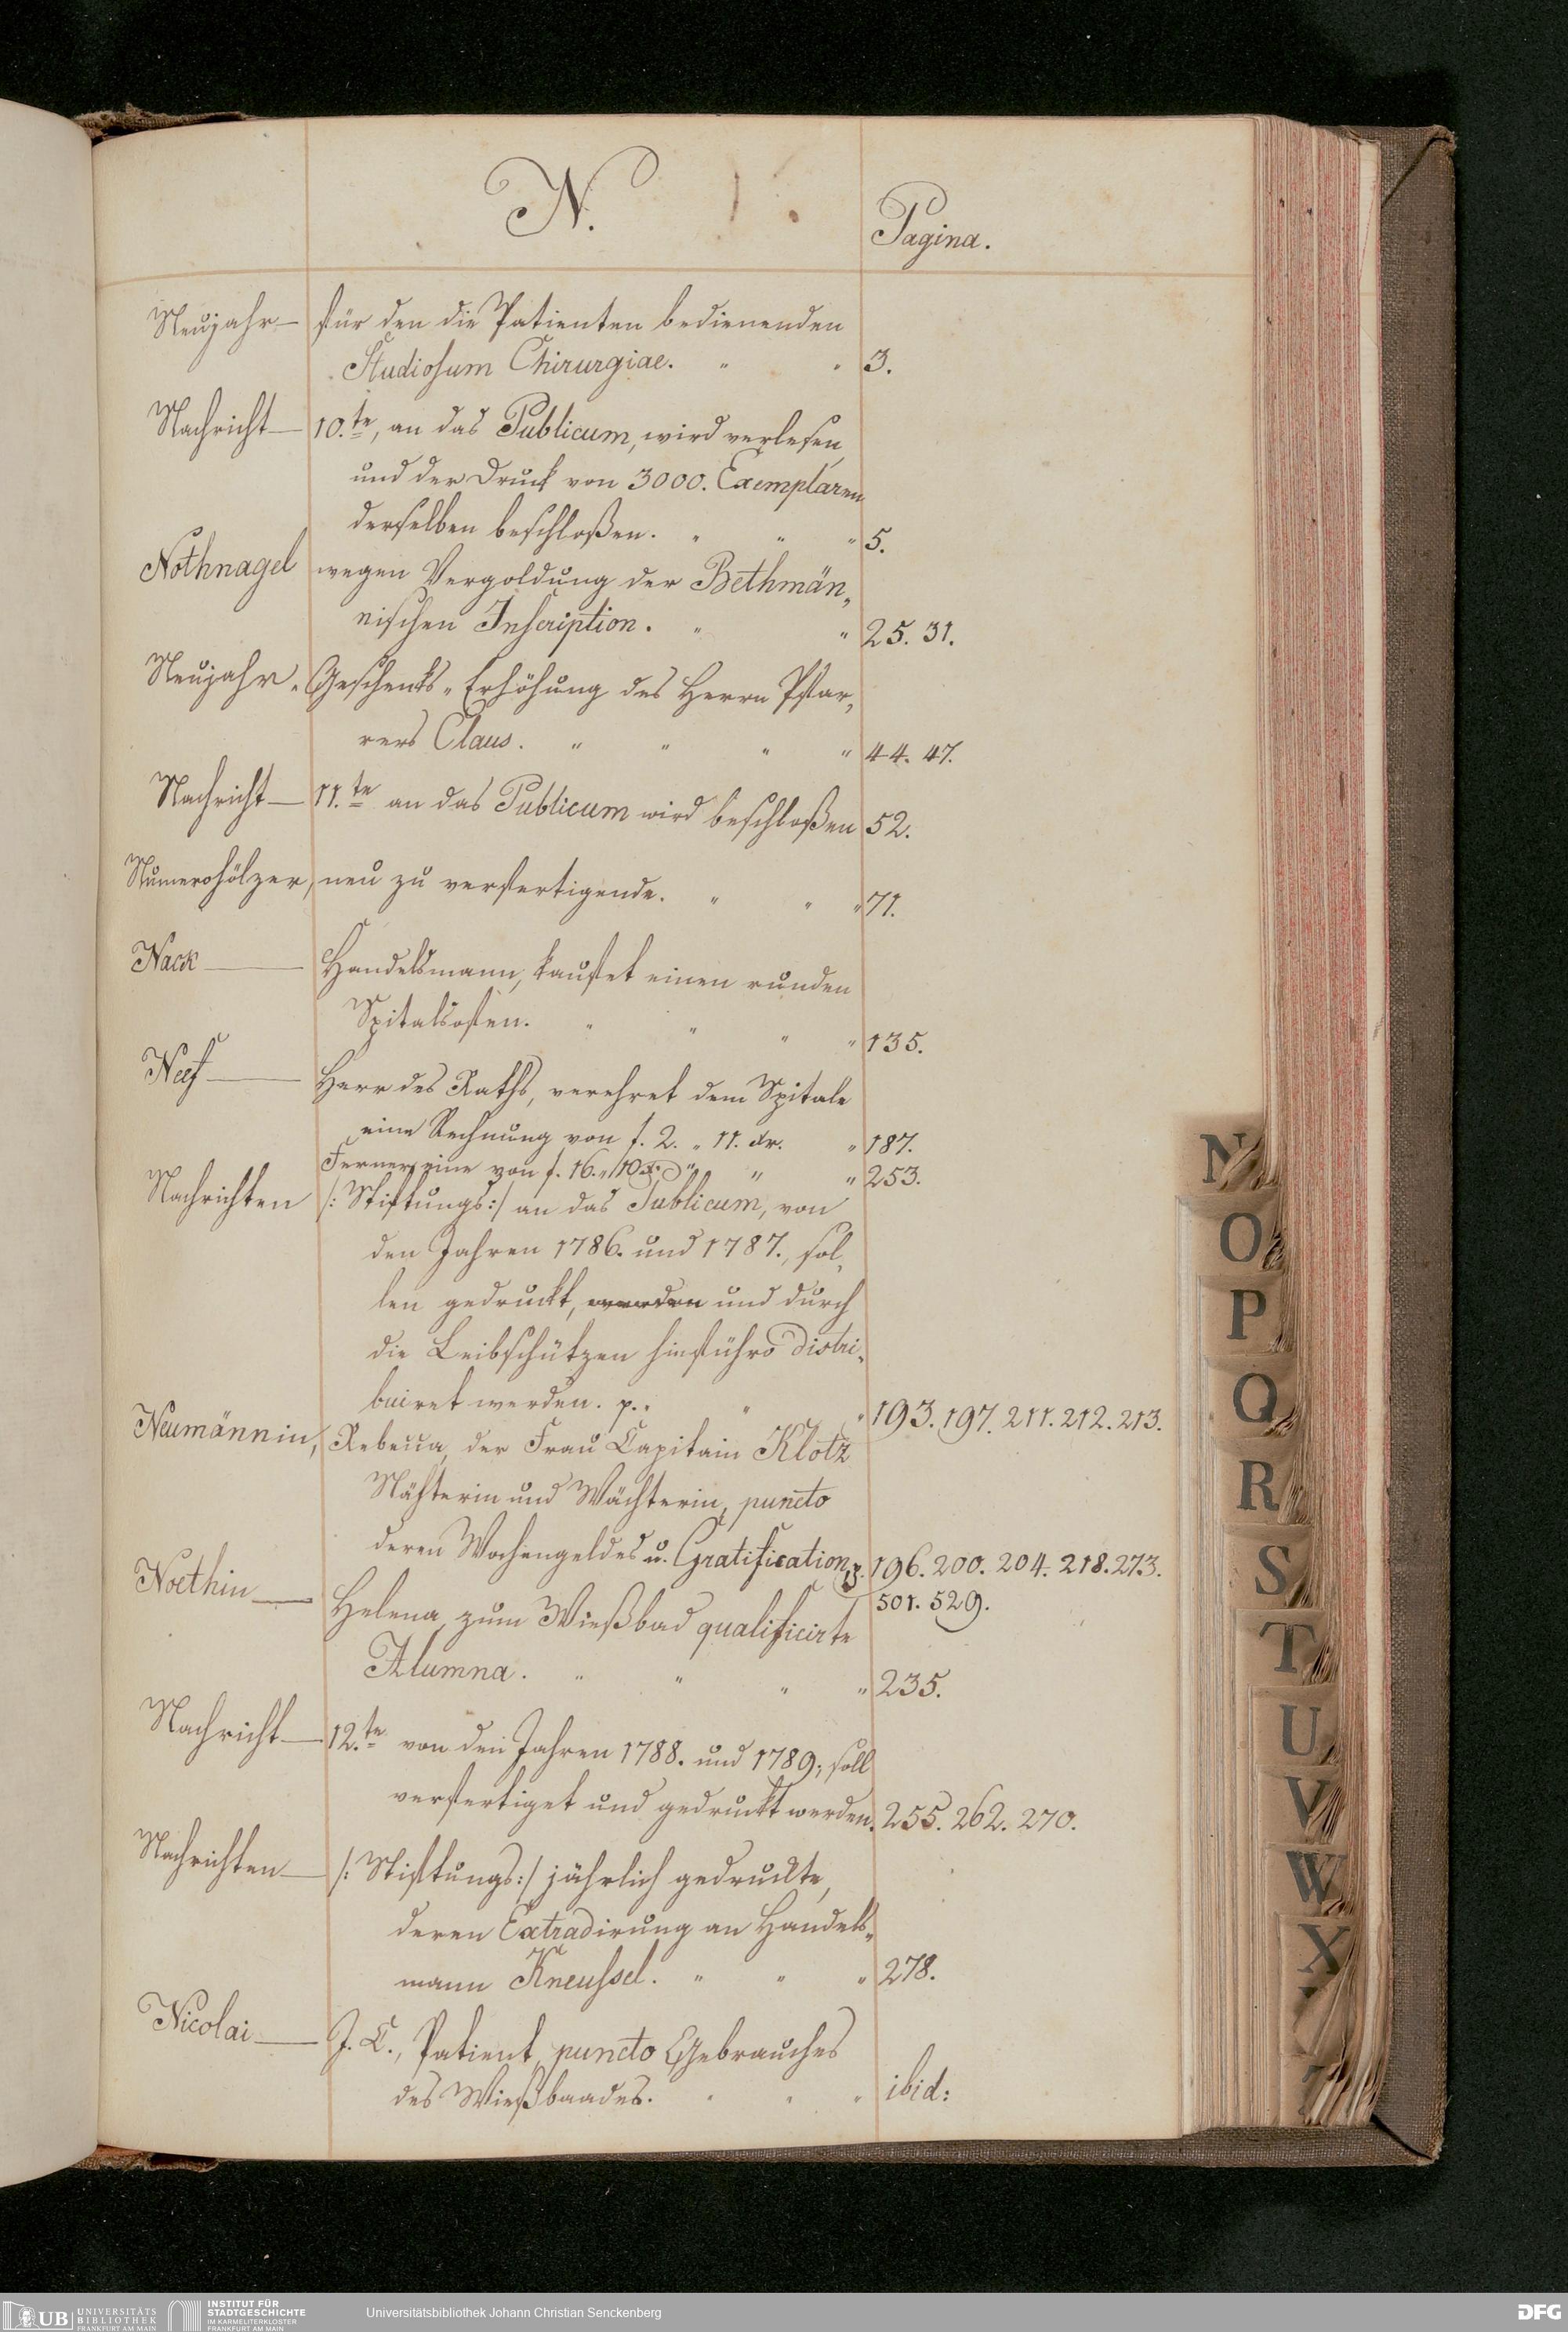 N.
Pagina.
Neujahr — für den die Patienten bedienenden
Studiosum Chirurgiae. " " 3.
Nachricht — 10.te, an das Publicum, wird verlesen,
und der Druck von 3000. Exemplaren
derselben beschloßen. " " " 5.
Nothnagel wegen Vergoldung der Bethmän„
nischen Inscription. " " 25. 31.
Neujahr„ Geschenks„Erhöhung des Herrn Pfar„
rers Claus. " " " " 44. 47.
Nachricht — 11.te an das Publicum wird beschloßen 52.
Numerohölzer, neu zu verfertigende. " " " 71.
Nack — Handelsmann, kaufet einen runden
Spitalsofen. " " " " 135.
Neef — Herr des Raths, verehret dem Spitale
eine Rechnung von f. 2. „ 11. xr. " 187.
Ferner eine von f. 16. „ 10 x. " " " 253.
Nachrichten /: Stiftungs :/ an das Publicum, von
den Jahren 1786. und 1787., sol„
len gedruckt, werden und durch
die Leibschützen hinführo distri„
buiret werden. p. . " " 193. 197. 211. 212. 213.
Neumännin, Rebecca, der Frau Capitain Klotz
Nähterin und Wächterin, puncto
deren Wochengeldes u. Gratification 196. 200. 204. 218. 273.
501. 529.
Noethin — Helena, zum Wießbad qualificirte
Alumna. " " " " 235.
Nachricht — 12.te von den Jahren 1788. und 1789., soll
verfertiget und gedruckt werden. 255. 262. 270.
Nachrichten — /: Stiftungs :/ jährlich gedruckte,
deren Extradirung an Handels„
mann Kneussel. " " " 278.
Nicolai — J. C., Patient, puncto Gebrauches
des Wießbaades. " " " ibid:
N
O
P
Q
R
S
T
U
V
W
X
UB UNIVERSITÄTS
BIBLIOTHEK
FRANKFURT AM MAIN
INSTITUT FÜR
STADTGESCHICHTE
IM KARMELITERKLOSTER
FRANKFURT AM MAIN
Universitätsbibliothek Johann Christian Senckenberg
DFG